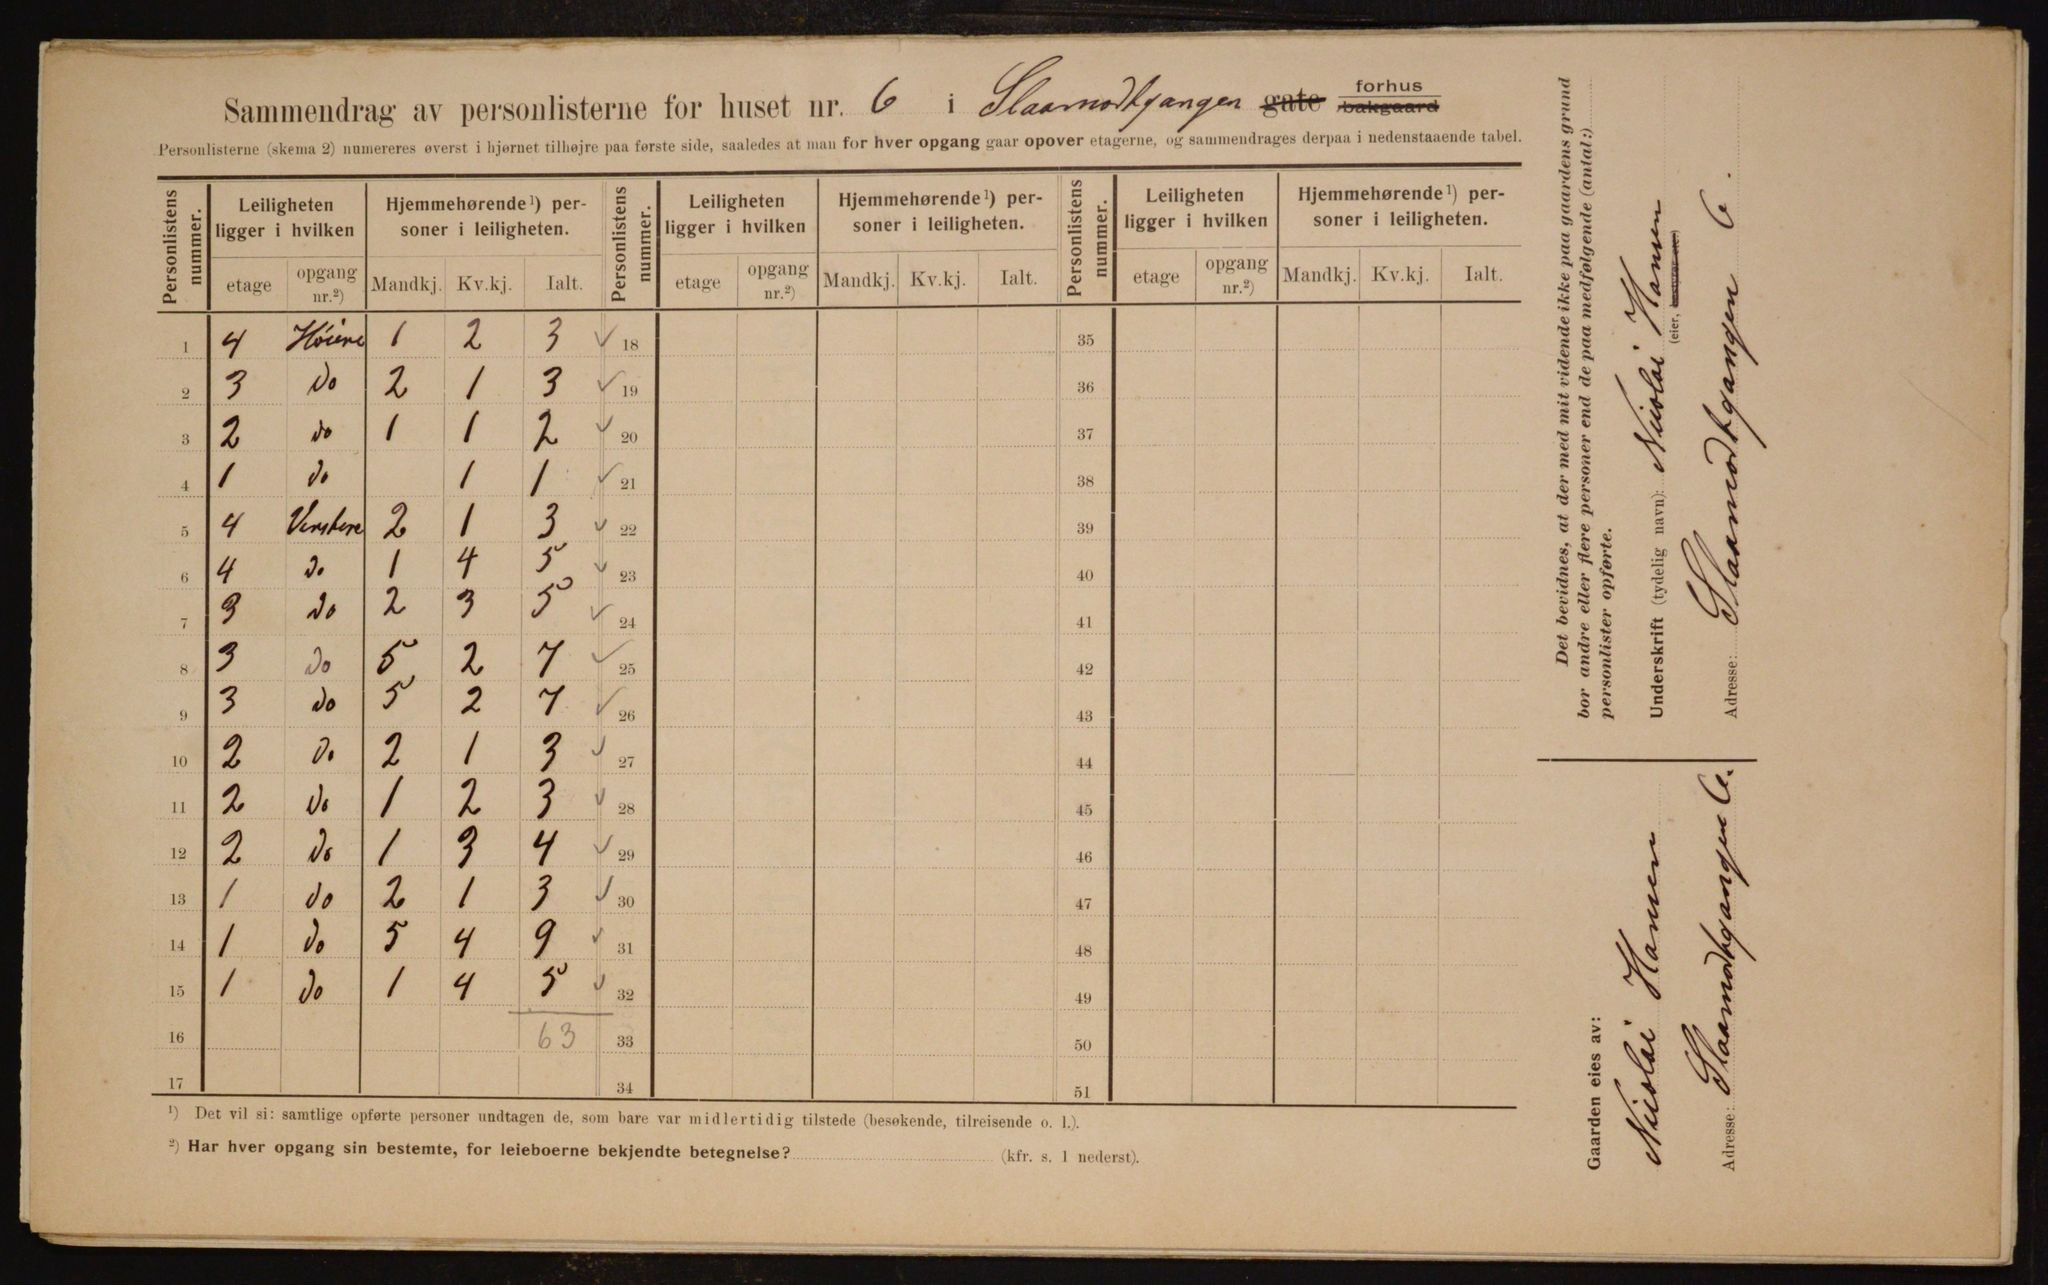 Sammendrag av personlisterne for huset nr. 6 i Slaamodtgangen gate forhus bakgaard
Personlisterne (skema 2) numereres øverst i hjørnet tilhøjre paa første side, saaledes at man for hver opgang gaar opover etagerne, og sammendrages derpaa i nedenstaaende tabel.
Personlistens nummer. Leiligheten ligger i hvilken Hjemmehørende¹) personer i leiligheten. Personlistens nummer. Leiligheten ligger i hvilken Hjemmehørende¹) personer i leiligheten. Personlistens nummer. Leiligheten ligger i hvilken Hjemmehørende¹) personer i leiligheten.
etage opgang nr.²) Mandkj. Kv.kj. Ialt. etage opgang nr.²) Mandkj. Kv.kj. Ialt. etage opgang nr.²) Mandkj. Kv.kj. Ialt.
1 4 Høiere 1 2 3 ✓ 18 35
2 3 do 2 1 3 ✓ 19 36
3 2 do 1 1 2 ✓ 20 37
4 1 do 1 1 ✓ 21 38
5 4 Venstere 2 1 3 ✓ 22 39
6 4 do 1 4 5 ✓ 23 40
7 3 do 2 3 5 ✓ 24 41
8 3 do 5 2 7 ✓ 25 42
9 3 do 5 2 7 ✓ 26 43
10 2 do 2 1 3 ✓ 27 44
11 2 do 1 2 3 ✓ 28 45
12 2 do 1 3 4 ✓ 29 46
13 1 do 2 1 3 ✓ 30 47
14 1 do 5 4 9 ✓ 31 48
15 1 do 1 4 5 ✓ 32 49
16 63 33 50
17 34 51
¹) Det vil si: samtlige opførte personer undtagen de, som bare var midlertidig tilstede (besøkende, tilreisende o. l.).
²) Har hver opgang sin bestemte, for leieboerne bekjendte betegnelse? (kfr. s. 1 nederst).
Det bevidnes, at der med mit vidende ikke paa gaardens grund
bor andre eller flere personer end de paa medfølgende (antal:)
personlister opførte.
Underskrift (tydelig navn): Nicolai Hansen
(eier, bestyrer etc.)
Adresse: Slaamodtgangen 6.
Gaarden eies av:
Nicolai Hansen
Adresse: Slaamodtgangen 6.